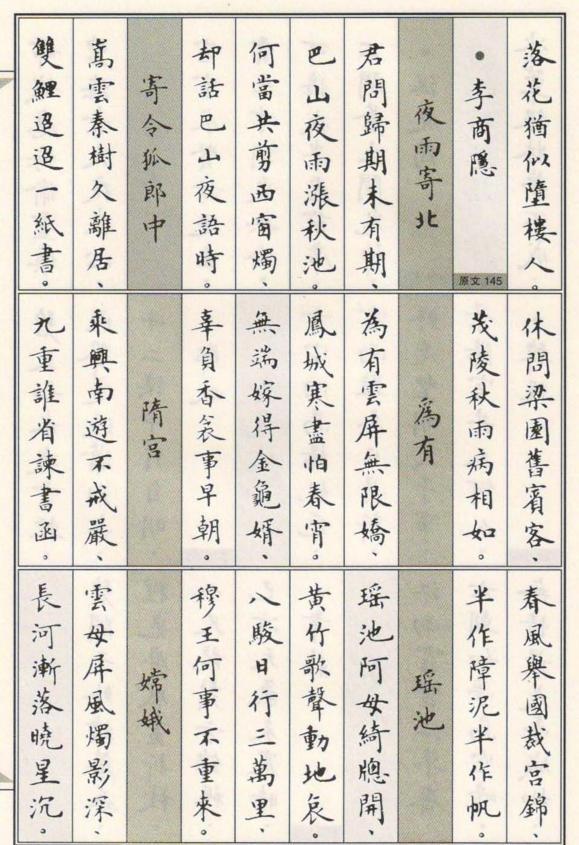 落花猶似墮樓人。
• 李商隱
原文 145
夜雨寄北
君問歸期未有期、
巴山夜雨漲秋池。
何當共剪西窗燭、
却話巴山夜語時。
寄令狐郎中
嵩雲秦樹久離居、
雙鯉迢迢一紙書。
休問梁園舊賓客、
茂陵秋雨病相如。
爲有
為有雲屏無限嬌、
鳳城寒盡怕春宵。
無端嫁得金龜婿、
辜負香衾事早朝。
隋宮
乘興南遊不戒嚴、
九重誰省諫書函。
春風舉國裁宮錦、
半作障泥半作帆。
瑶池
瑶池阿母綺牕開、
黃竹歌聲動地哀。
八駿日行三萬里、
穆王何事不重來。
嫦娥
雲母屏風燭影深、
長河漸落曉星沉。